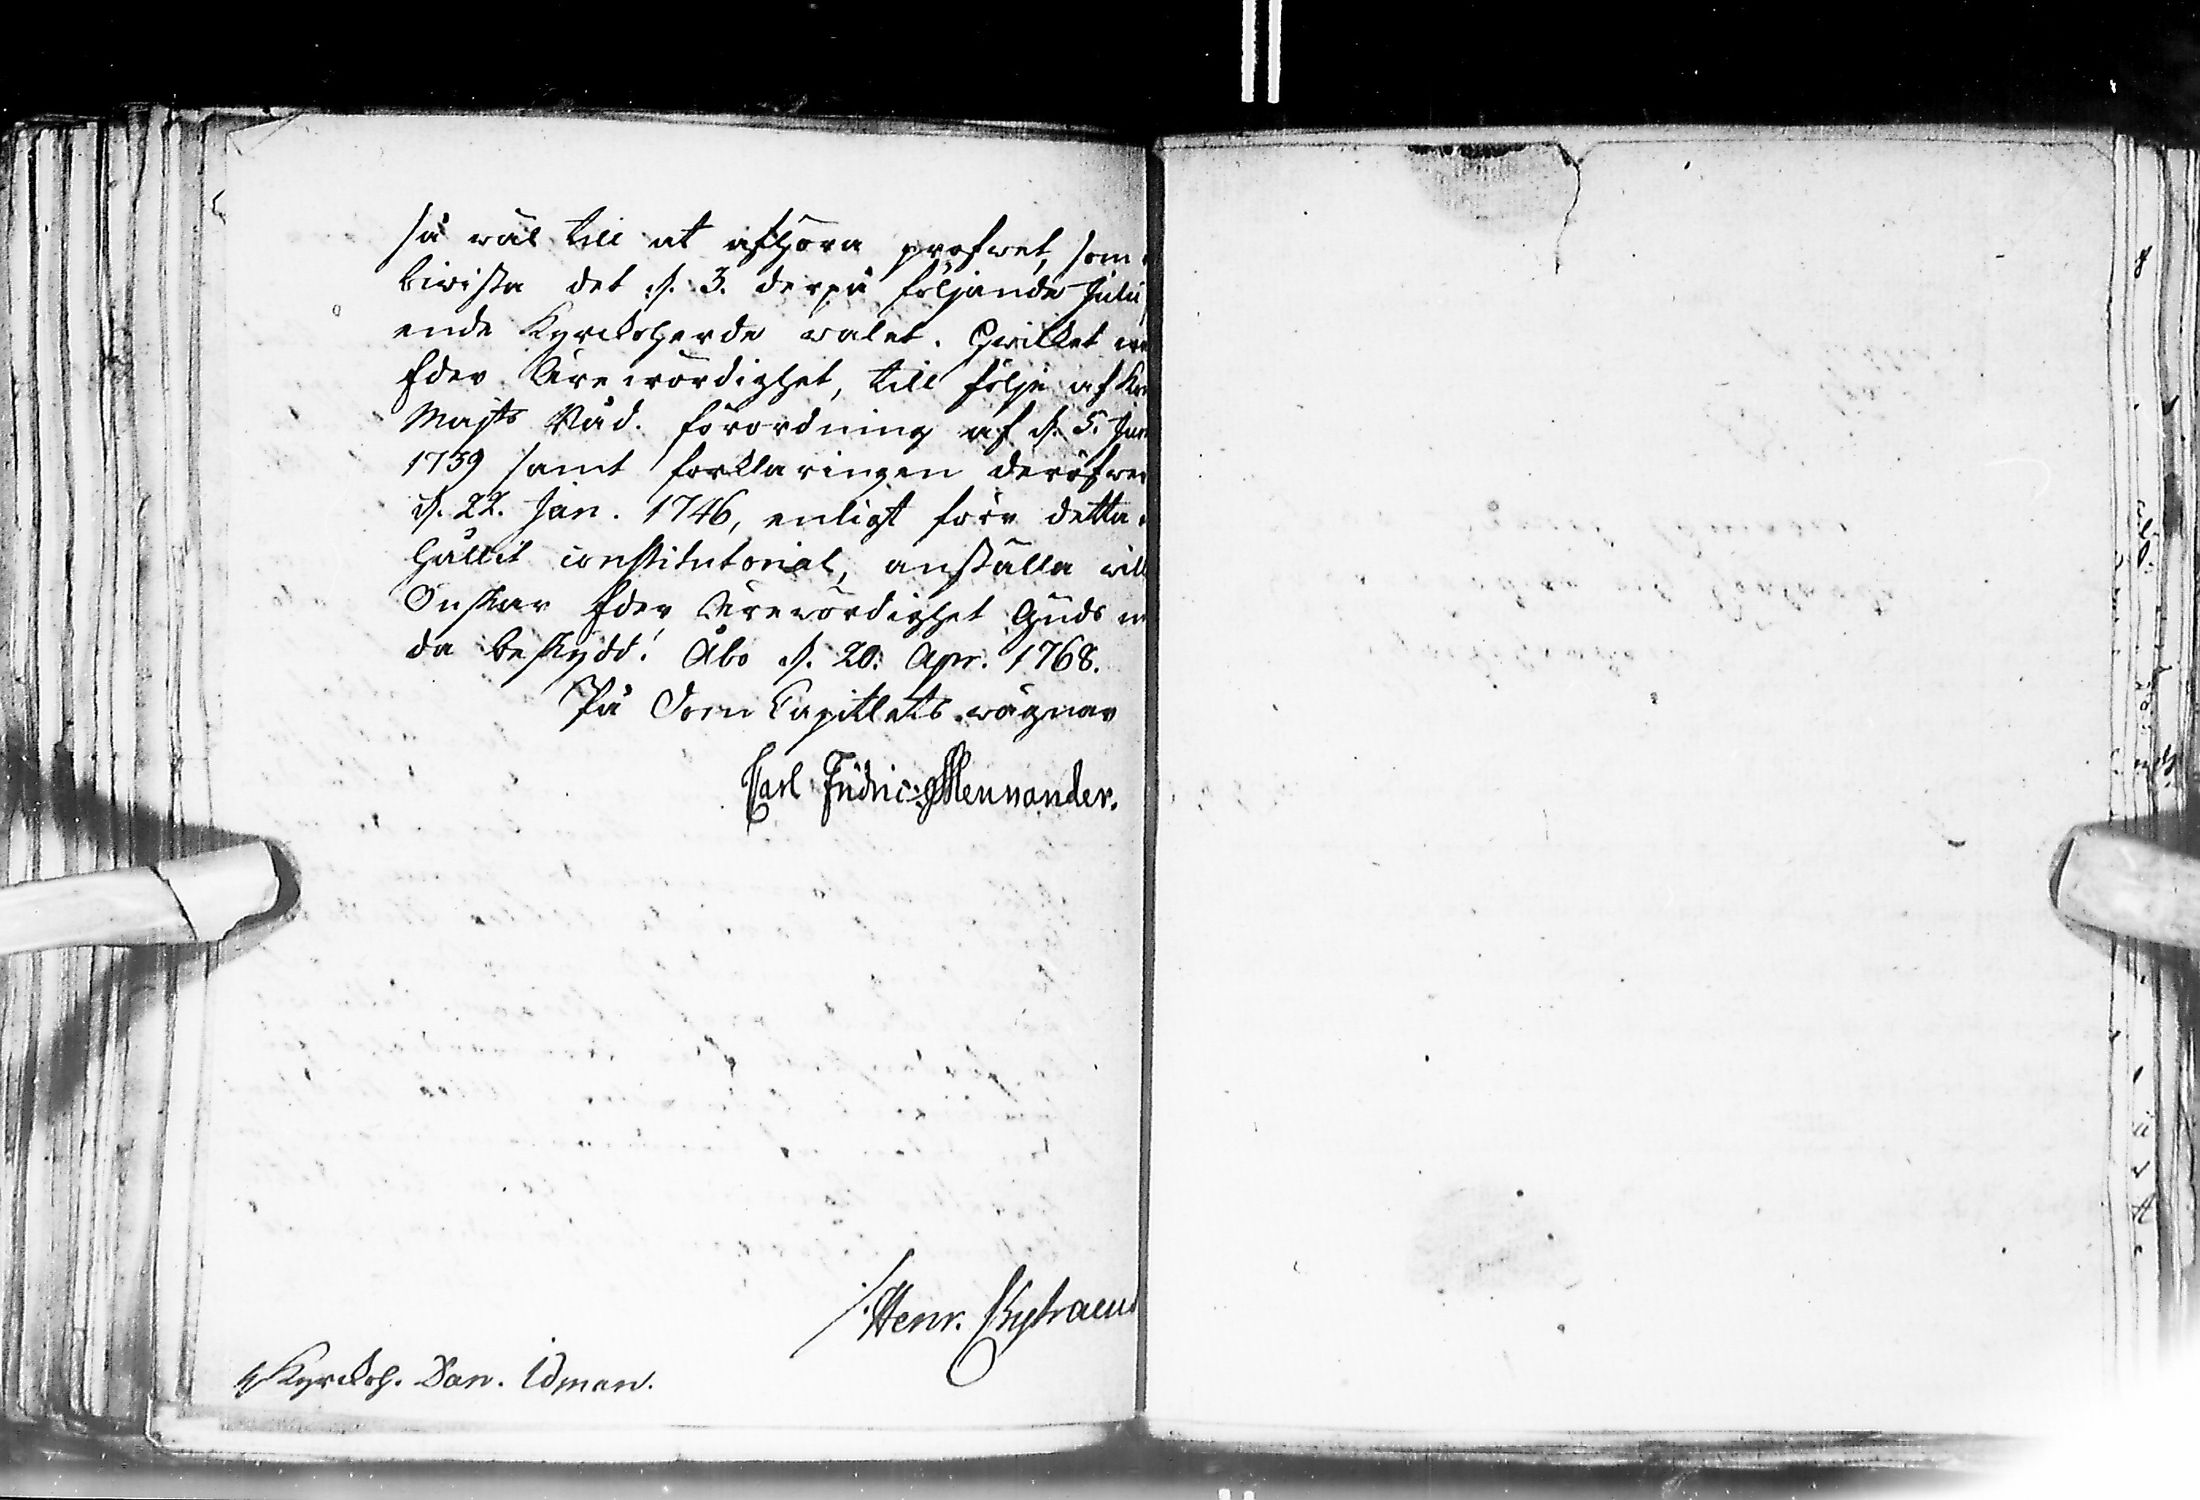 så wäl till at afhöra profwet, som
biwista det d. 3. derpå följande Julii
ende Kyrckoherde walet. Hwilket
Eder Ärewördighet, till följe af
Majts Nåd. förordning af d. 5. Jun
1739 samt förklaringen deröfwer
d. 22. Jan. 1746, enligt förr detta
hållit constitutorial, anställa will
Önskar Eder Ärewördighet Guds
da beskydd! Åbo d. 20. Apr. 1768.
På Dom Capitlets wägnar
Carl Fridric: Mennander.
Henr.
Kyrckoh. Dan. Idman.